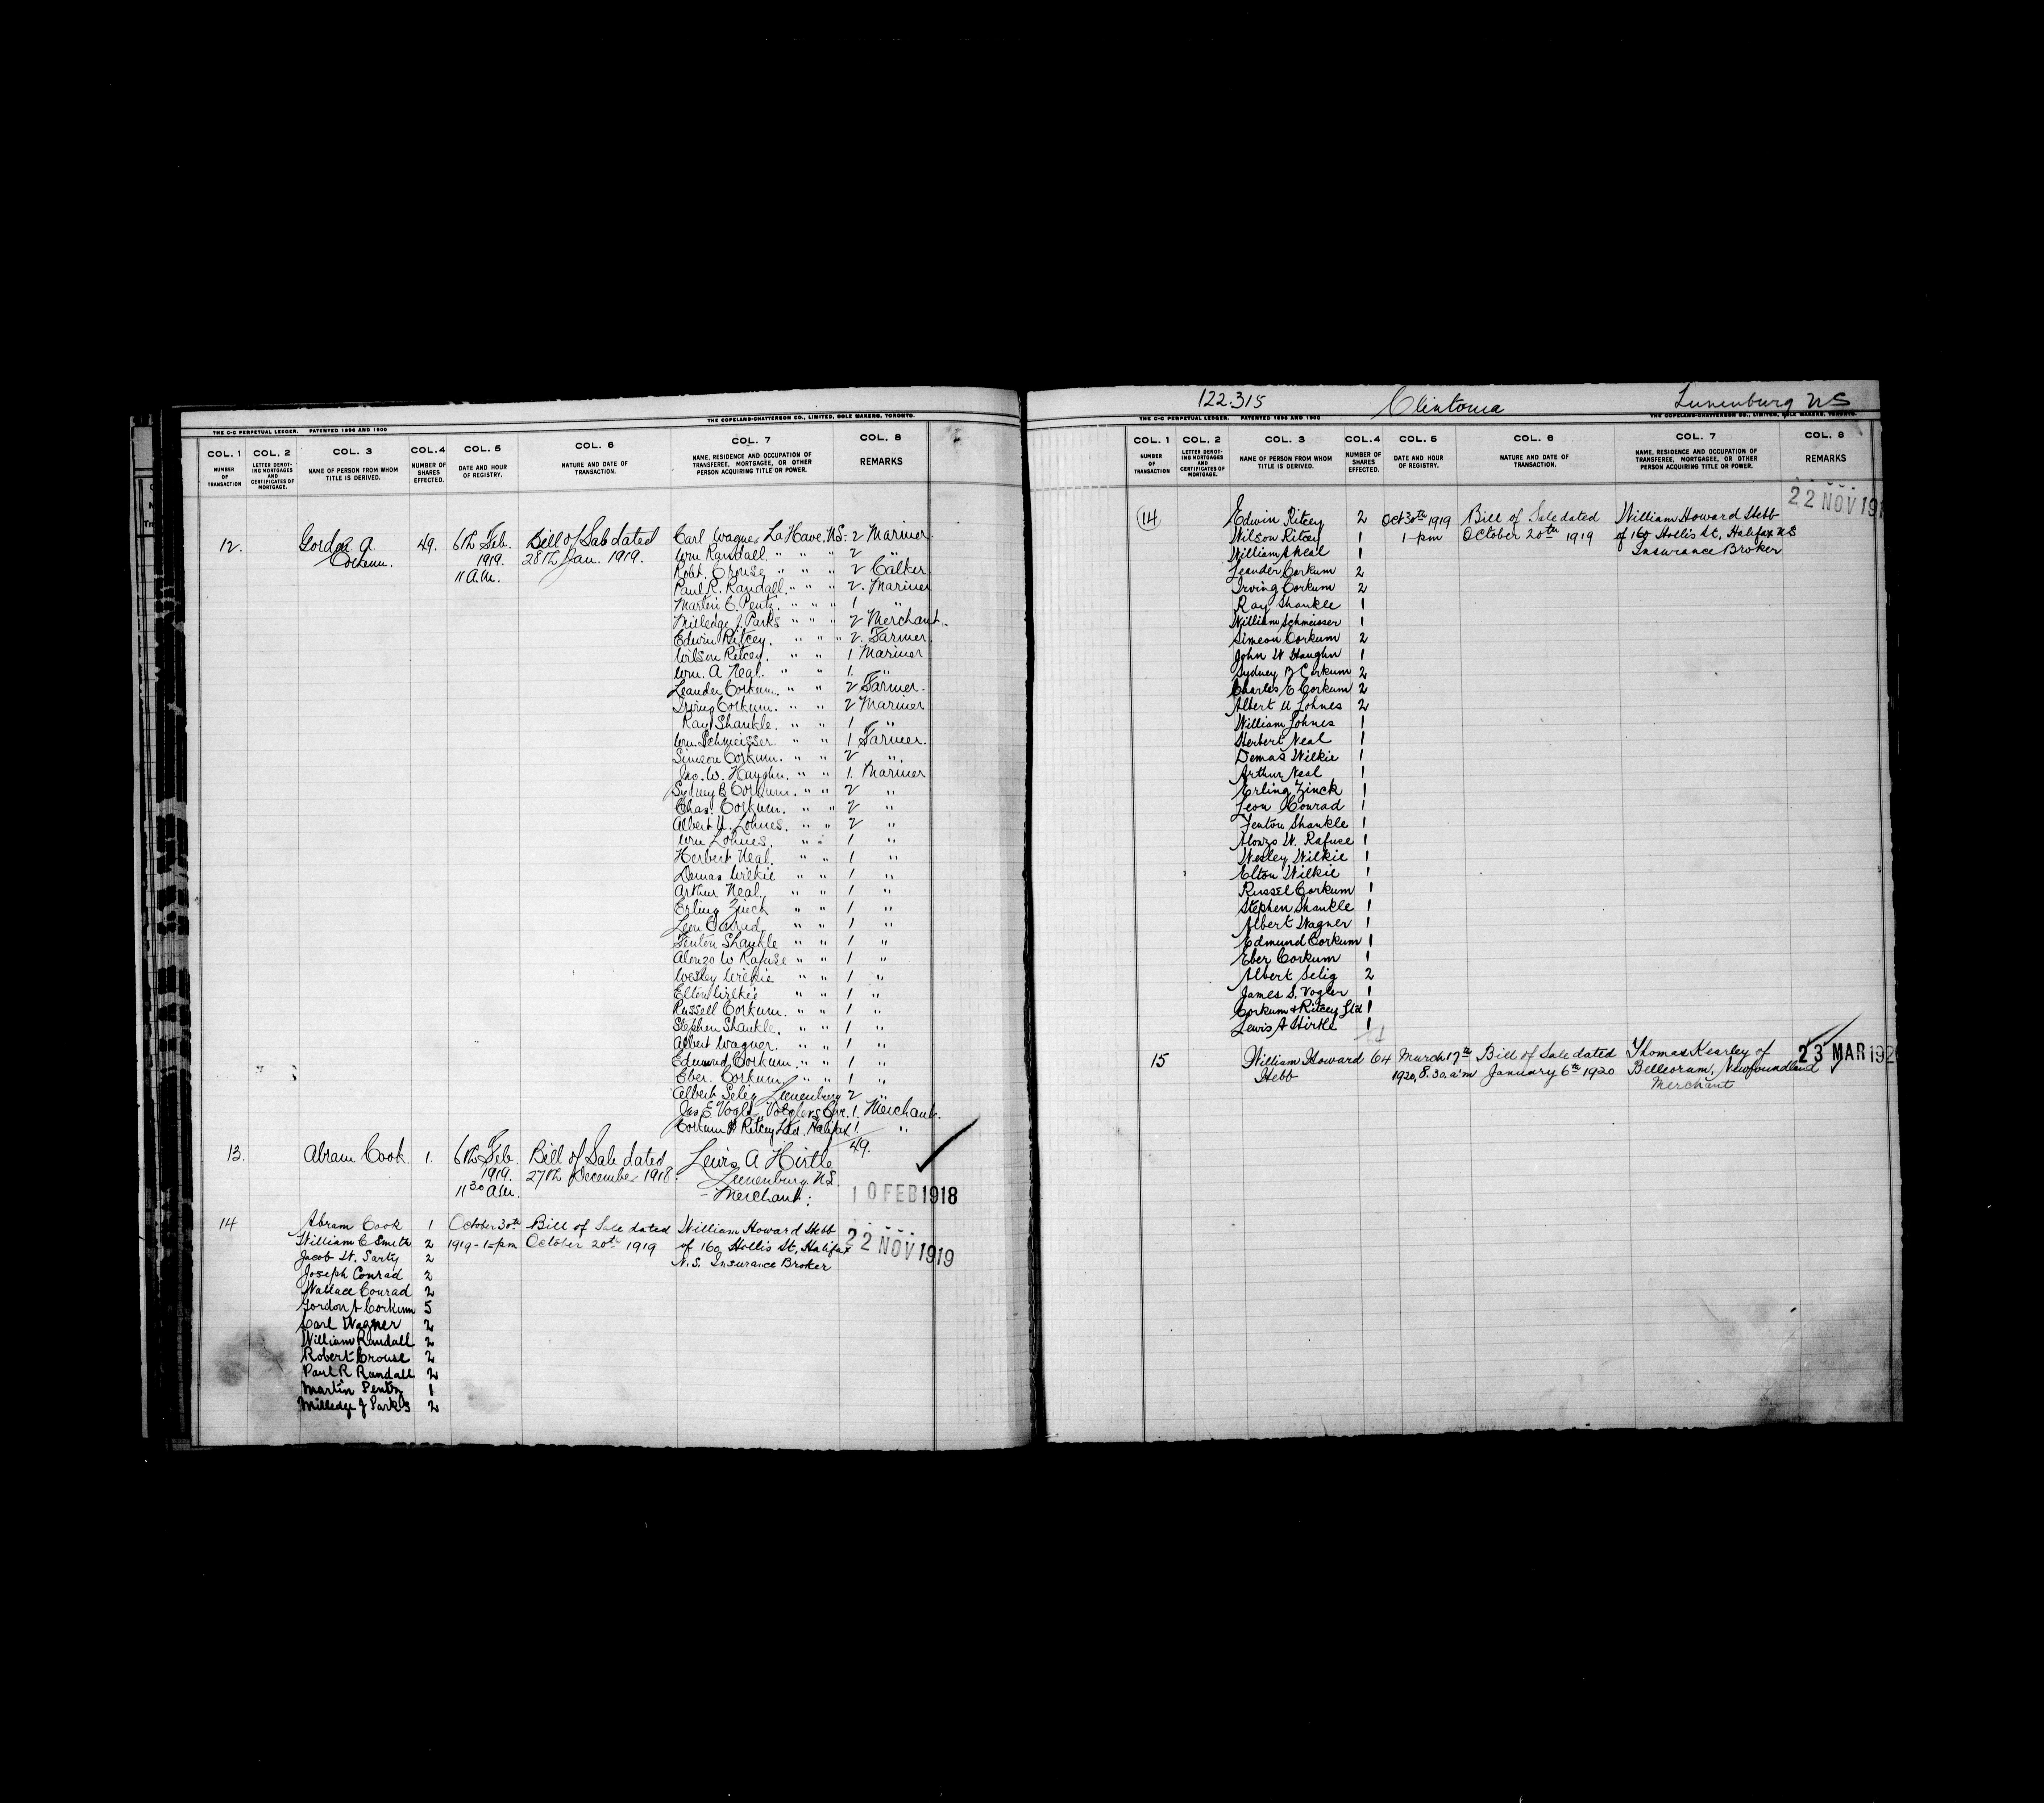 THE C-C PERPETUAL LEDGER. PATENTED 1896 AND 1900
THE COPELAND-CHATTERSON CO., LIMITED, SOLE MAKERS, TORONTO.
COL. 1 COL. 2 COL. 3 COL. 4 COL. 5 COL. 6 COL. 7 COL. 8
NUMBER OF TRANSACTION
LETTER DENOTING MORTGAGES AND CERTIFICATES OF MORTGAGE.
NAME OF PERSON FROM WHOM TITLE IS DERIVED.
NUMBER OF SHARES EFFECTED.
DATE AND HOUR OF REGISTRY.
NATURE AND DATE OF TRANSACTION.
NAME, RESIDENCE AND OCCUPATION OF TRANSFEREE, MORTGAGEE, OR OTHER PERSON ACQUIRING TITLE OR POWER.
REMARKS
12. Gordon A Corkum. 49. 6th Feb. 1919. 11 a.m. Bill of Sale dated 28th Jan. 1919.
Carl Wagner La Have. N.S. 2 Mariner
Wm Randall. " " " 2 "
Robt. Crouse " " " 2 Calker
Paul R. Randall. " " " 2. Mariner
Martin C. Pentz. " " " 1 "
Milledge J. Parks " " " 2 Merchant.
Edwin Ritcey. " " " 2. Farmer.
Wilson Ritcey. " " 1 Mariner
Wm. A Neal. " " 1. "
Leander Corkum. " " 2 Farmer.
Irving Corkum. " " 2 Mariner
Ray Shankle. " " 1 "
Wm. Schmeisser. " " 1 Farmer.
Simeon Corkum. " " 2 "
Jno. W. Haughn. " " 1. Mariner
Sydney B Corkum. " " 2 "
Chas. Corkum. " " 2 "
Albert U. Lohnes. " " 2 "
Wm Lohnes. " " 1 "
Herbert Neal. " " 1 "
Demas Wilkie " " 1 "
Arthur Neal. " " 1 "
Erling Zinck " " 1 "
Leon Conrad " " 1 "
Fenton Shankle " " 1 "
Alonzo W Rafuse " " 1 "
Wesley Wilkie " " 1 "
Elton Wilkie " " 1 "
Russell Corkum. " " 1 "
Stephen Shankle. " " 1 "
Albert Wagner. " " 1 "
Edmund Corkum. " " 1 "
Eber. Corkum " " 1 "
Albert Selig Lunenburg 2 "
Jas. Vogler Voglers Cove. 1. Merchant.
Corkum & Ritcey Ltd. Halifax 1. "
49.
13. Abram Cook. 1. 6th Feb. 1919. 11 30 a.m. Bill of Sale dated 27th December 1918.
Lewis A Hirtle
Lunenburg N.S.
- Merchant.
10 FEB 1918
14 Abram Cook 1 October 30th 1919 - 1 - pm Bill of Sale dated October 20th 1919
William Howard Hebb
of 160 Hollis St, Halifax
N.S. Insurance Broker
22 NOV 1919
William C Smith 2
Jacob W. Sarty 2
Joseph Conrad 2
Wallace Conrad 2
Gordon A Corkum 5
Carl Wagner 2
William Randall 2
Robert Crouse 2
Paul R Randall 2
Martin Pentz 1
Milledge J Parks 2
122.315 Clintonia Lunenburg NS
THE C-C PERPETUAL LEDGER. PATENTED 1896 AND 1900
THE COPELAND-CHATTERSON CO., LIMITED, SOLE MAKERS, TORONTO.
COL. 1 COL. 2 COL. 3 COL. 4 COL. 5 COL. 6 COL. 7 COL. 8
NUMBER OF TRANSACTION
LETTER DENOTING MORTGAGES AND CERTIFICATES OF MORTGAGE.
NAME OF PERSON FROM WHOM TITLE IS DERIVED.
NUMBER OF SHARES EFFECTED.
DATE AND HOUR OF REGISTRY.
NATURE AND DATE OF TRANSACTION.
NAME, RESIDENCE AND OCCUPATION OF TRANSFEREE, MORTGAGEE, OR OTHER PERSON ACQUIRING TITLE OR POWER.
REMARKS
22 NOV 191
14 Edwin Ritcey 2 Oct 30th 1919 Bill of Sale dated William Howard Hebb
Wilson Ritcey 1 1 - pm October 20th 1919 of 160 Hollis St, Halifax NS
William A Neal 1 Insurance Broker
Leander Corkum 2
Irving Corkum 2
Ray Shankle 1
William Schmeisser 1
Simeon Corkum 2
John W Haughn 1
Sydney B Corkum 2
Charles E Corkum 2
Albert U Lohnes 2
William Lohnes 1
Herbert Neal 1
Demas Wilkie 1
Arthur Neal 1
Erling Zinck 1
Leon Conrad 1
Fenton Shankle 1
Alonzo W. Rafuse 1
Wesley Wilkie 1
Elton Wilkie 1
Russel Corkum 1
Stephen Shankle 1
Albert Wagner 1
Edmund Corkum 1
Eber Corkum 1
Albert Selig 2
James S. Vogler 1
Corkum & Ritcey Ltd 1
Lewis A Hirtle 1
64
15 William Howard Hebb 64 March 17th 1920, 8.30. a'm Bill of Sale dated January 6th 1920
Thomas Kearley of
Belleoram, Newfoundland
Merchant
23 MAR 192